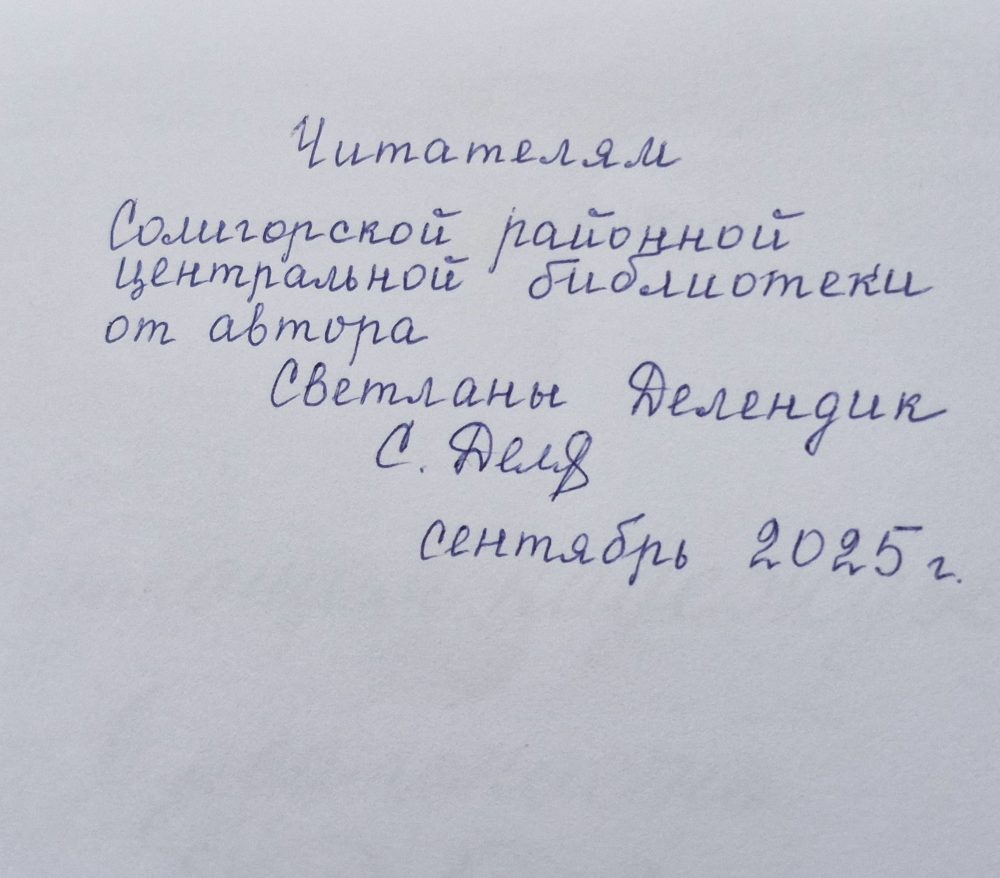 Читателям
Солигорской районной
центральной библиотеки
от автора
Светланы Делендик
С. Дел
сентябрь 2025 г.